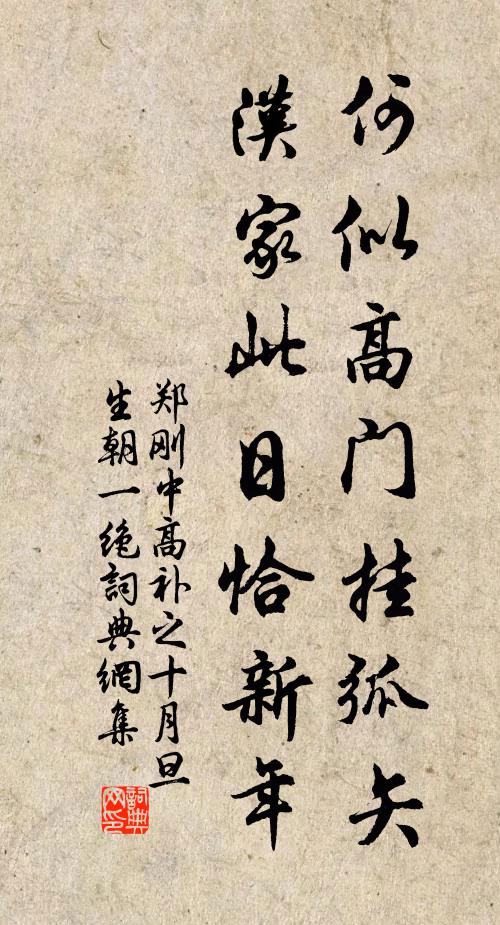 何似高门挂弧矢
漢家此日恰新年
郑刚中高补之十月旦
生朝一绝詞典網集
詞典
网印